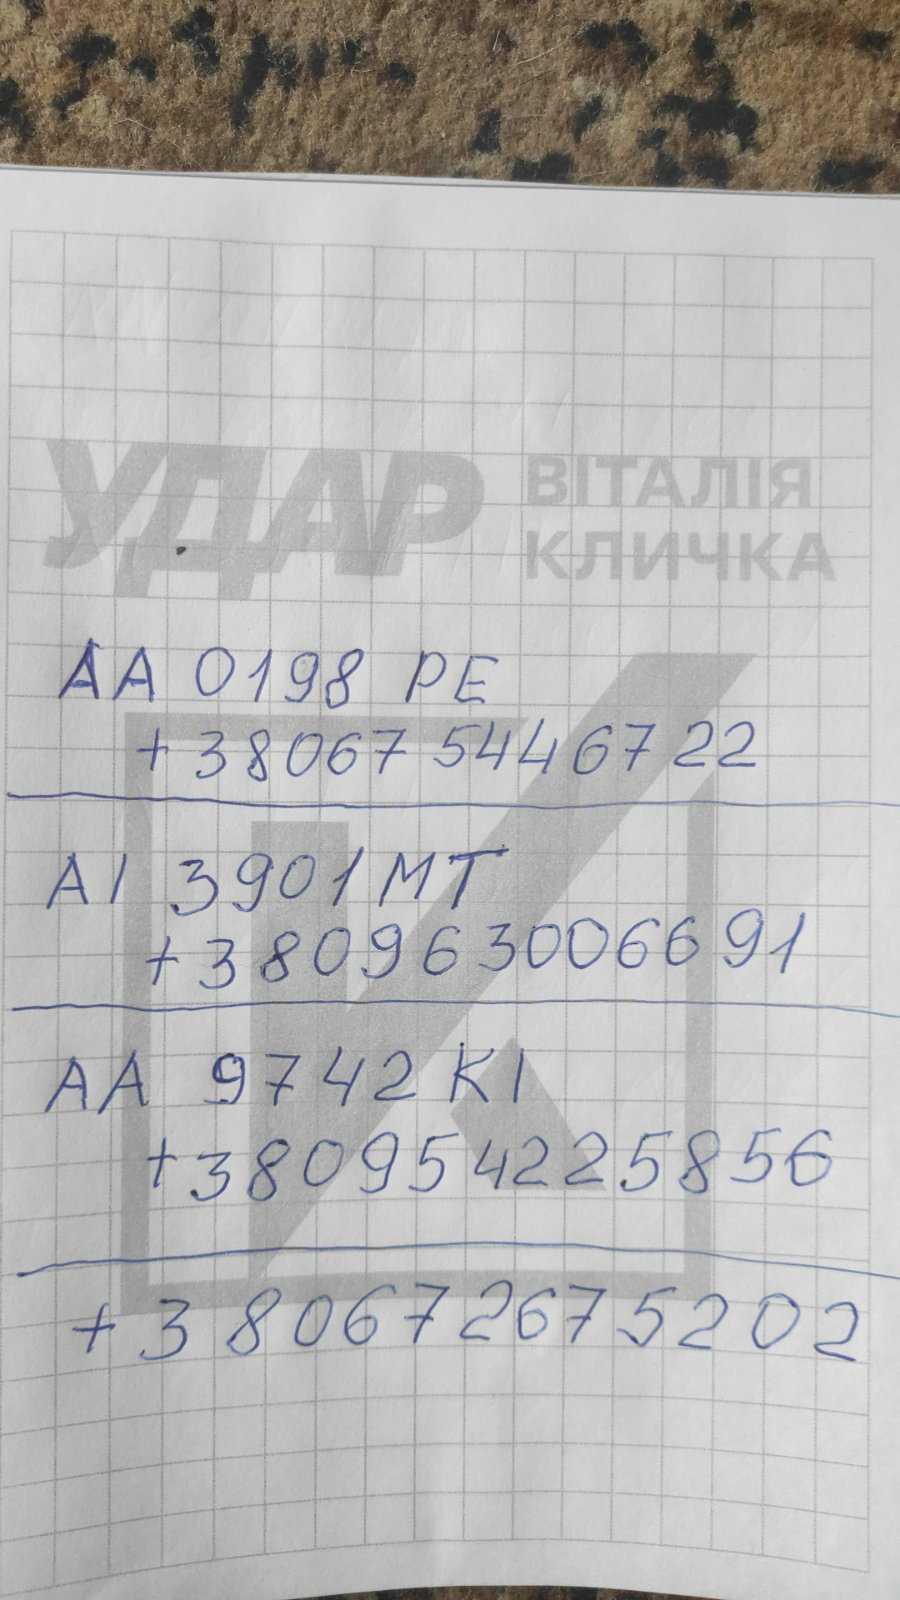 УДАР ВІТАЛІЯ
КЛИЧКА
АА 0198 РЕ
+38067 5446722
АІ 3901 МТ
+380963006691
АА 9742 КІ
+380954225856
+380672675202